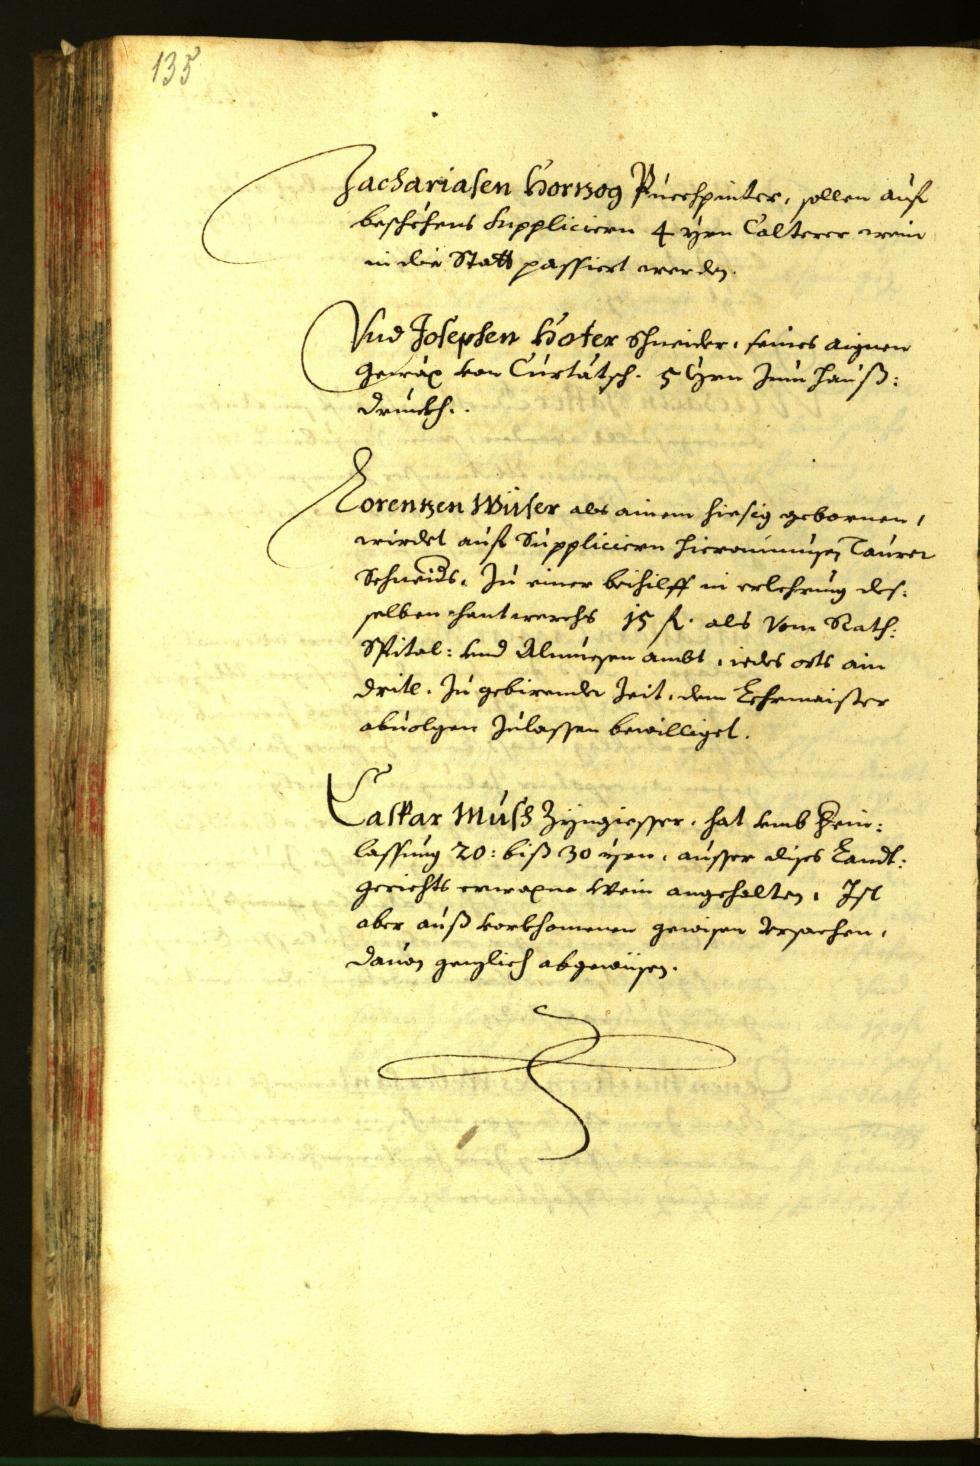 135
Zachariasen Hertzog Puechpinter, sollen auf
beschehens Suppliciern 4 yrn Calterer wein
in die Statt passiert werden.
Vnd Josephen Hofer Schneider, seines aignen
gewäx von Curtätsch. 5 Yrn zum hauß:
drunckh.
Lorentzen Wiser als ainem hiesig gebornen,
wirdet auf Suppliciern Hieronimusen Taurer
Schneids, Zu einer beihilff in erlehrnung des:
selben hantwerchs 15 f. als Vom Rath:
Spital: vnd Almuesen ambt, iedes orts ain
dritl. Zu gebirender Zeit, dem Lehrmaister
abuolgen zulassen bewilliget.
Caspar Musß Zyngiesser, hat vmb Hein:
lassung 20: biß 30 yrn, ausser dises Landt:
gerichts erwaxne Wein angehalten, Ist
aber auß vorkhomenen gewisen Vrsachen,
dauon genzlich abgewisen.